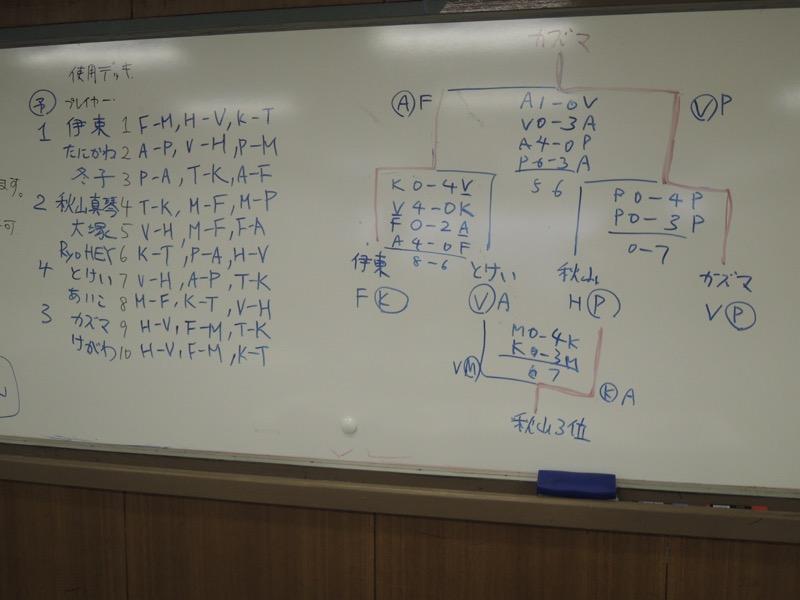 使用デッキ
予
プレイヤー
1 伊東 1 F-M, H-V, K-T
たにかわ 2 A-P, V-H, P-M
冬子 3 P-A, T-K, A-F
2 秋山真琴 4 T-K, M-F, M-P
大塚 5 V-H, M-F, F-A
RyoHEY 6 K-T, P-A, H-V
4 とけい 7 V-H, A-P, T-K
あいこ 8 M-F, K-T, V-H
3 カズマ 9 H-V, F-M, T-K
けがわ 10 H-V, F-M, K-T
ます。
可
カズマ
A F
V P
A 1-0 V
V 0-3 A
A 4-0 P
P 6-3 A
5 6
K 0-4 V
V 4-0 K
F 0-2 A
A 4-0 F
8-6
P 0-4 P
P 0-3 P
0-7
伊東
とけい
秋山
カズマ
F K
V A
H P
V P
M 0-4 K
K 0-3 M
0 7
V M
K A
秋山3位